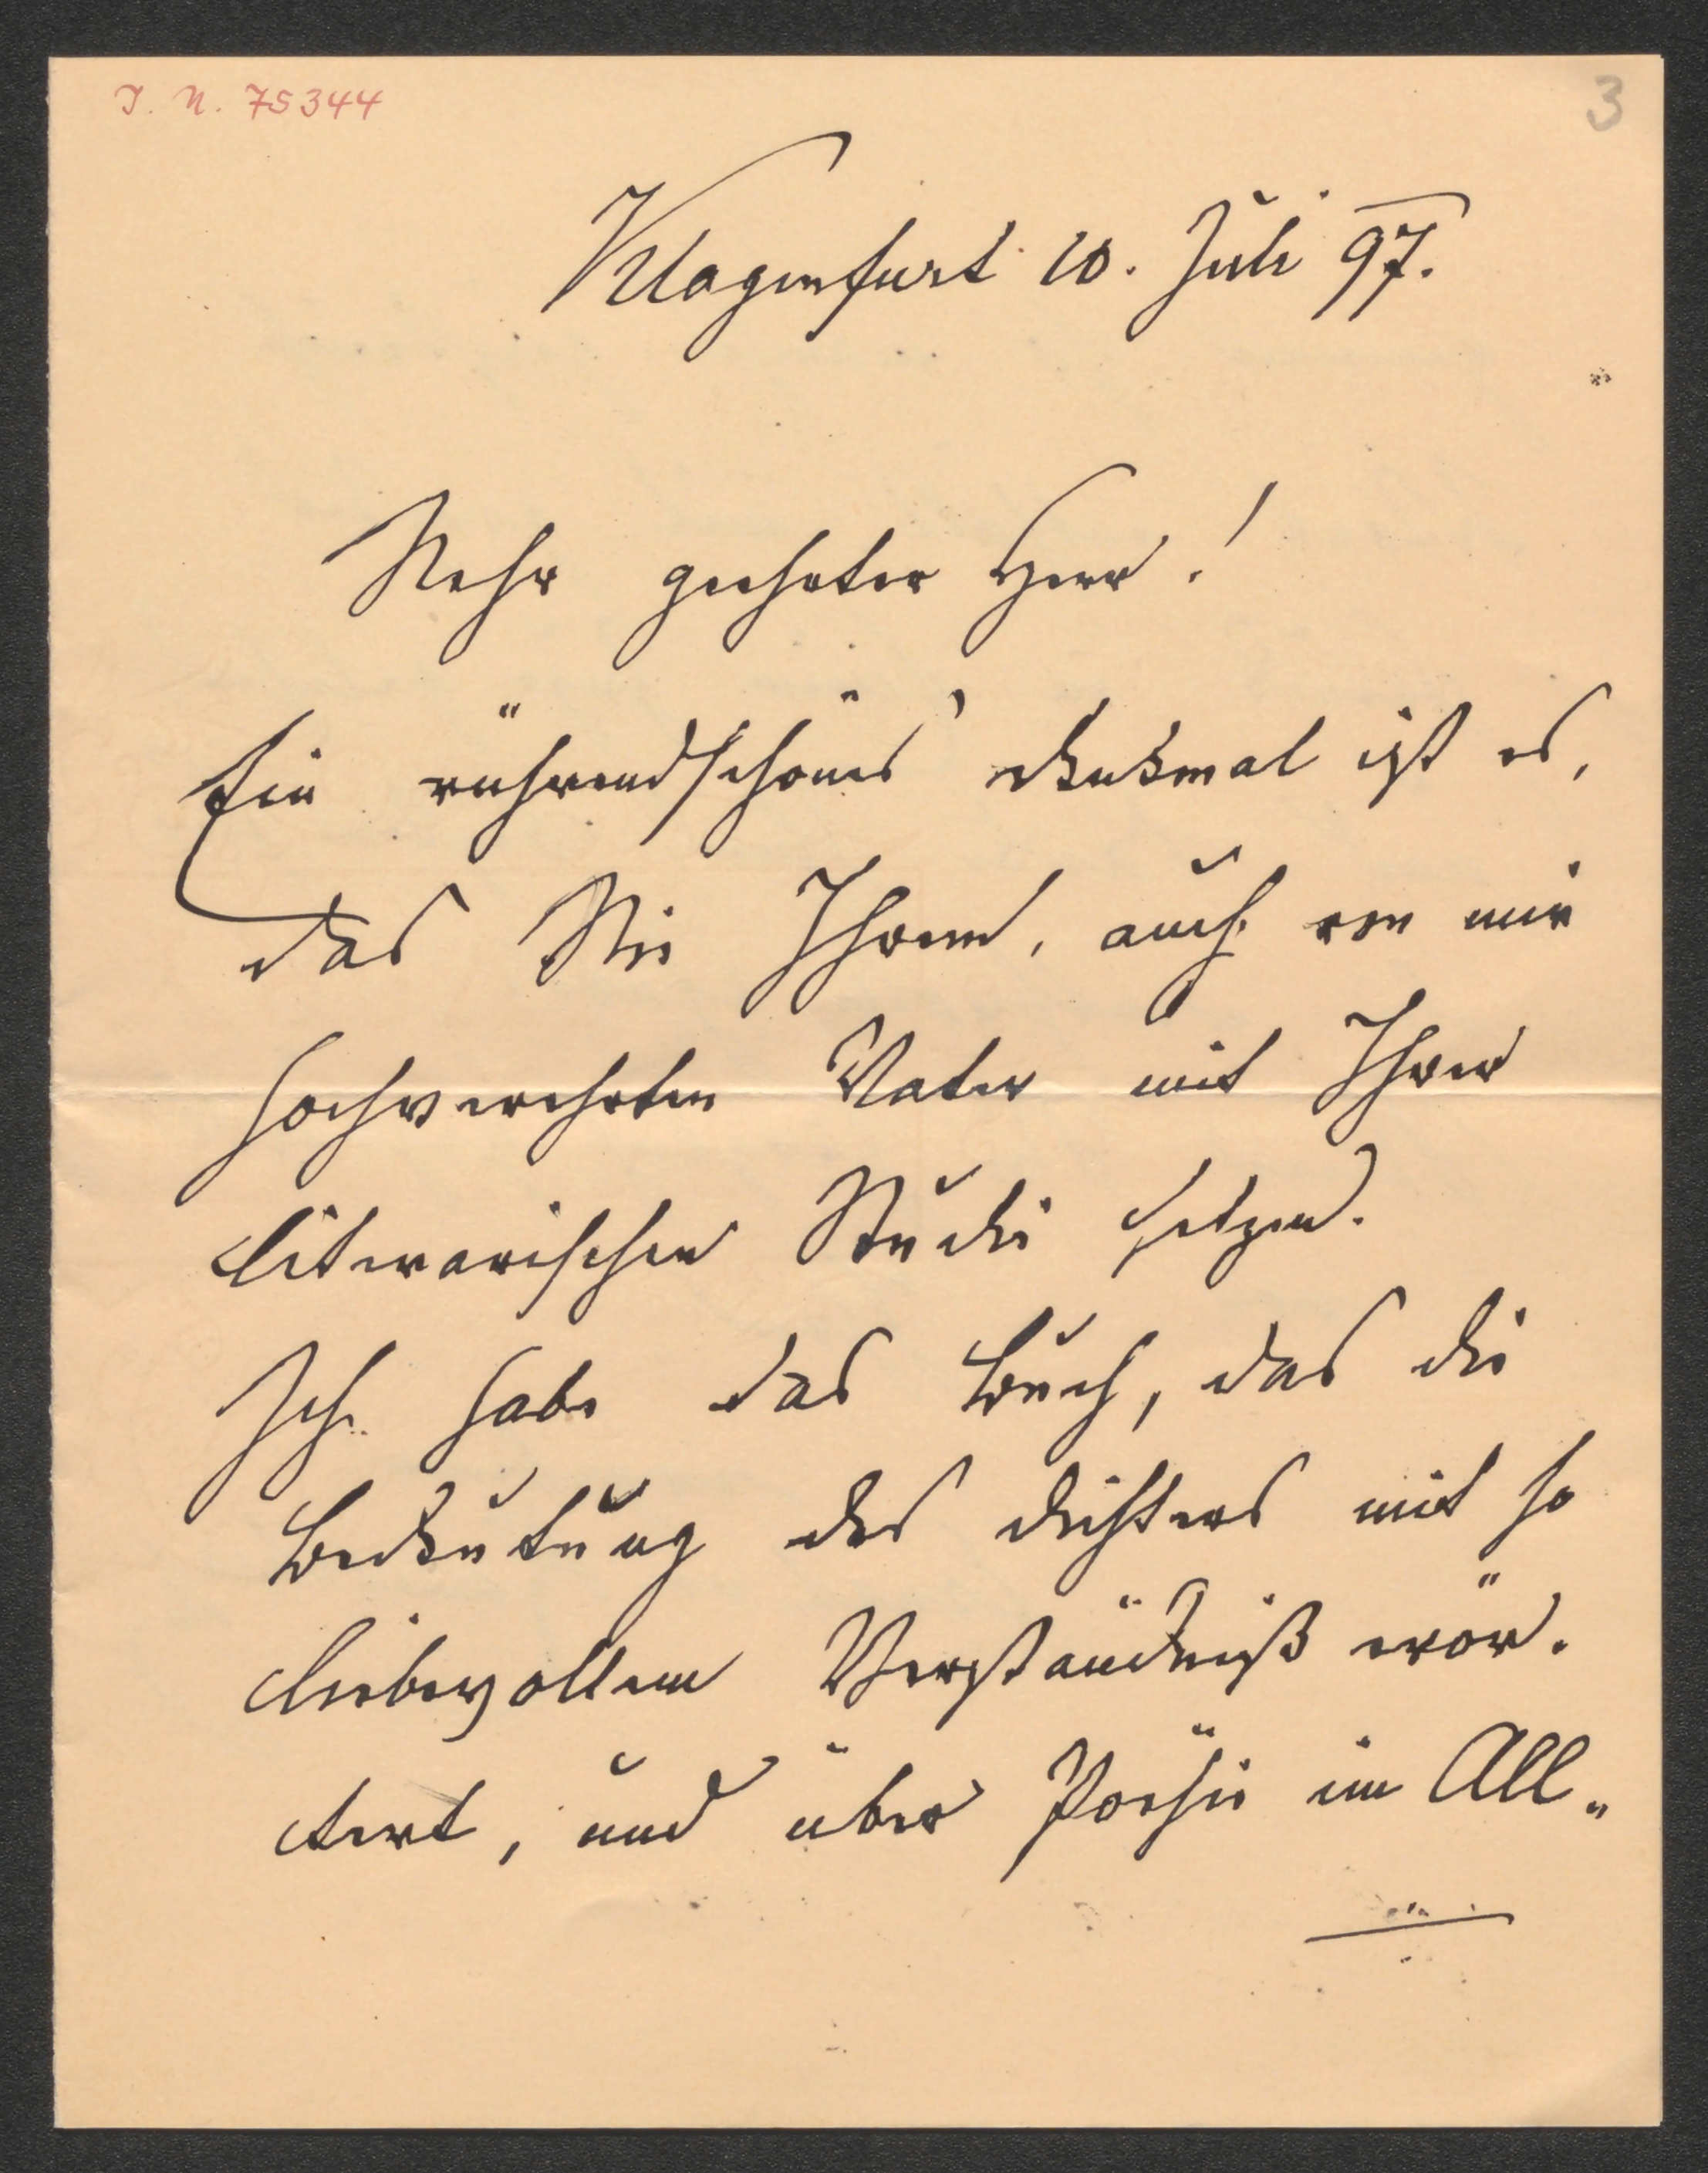 I. N. 75344
3
Klagenfurt 10. Juli 97.
Sehr geehrter Herr!
Ein rührendschönes Denkmal ist es,
das Sie Ihrem, auch von mir
hochverehrten Vater mit Ihrer
literarischen Studie setzen.
Ich habe das Buch, das die
Bedeutung des Dichters mit so
liebevollem Verständniß erör-
tert, und über Poesie im All-